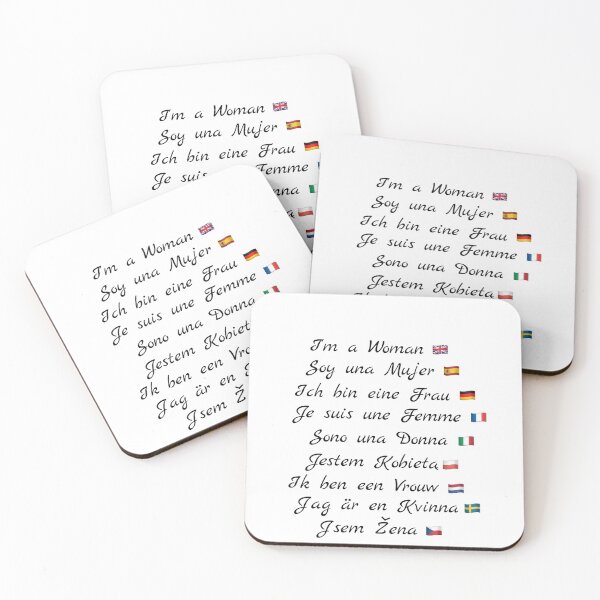 I'm a Woman
Soy una Mujer
Ich bin eine Frau
Je suis Femme
I'm a Woman
Soy una Mujer
Ich bin eine Frau
Je suis une Femme
Sono una Donna
Jestem Kobietą
I'm a Woman
Soy una Mujer
Ich bin eine Frau
Je suis une Femme
Sono una Donna
Jestem Kobietą
Ik ben een
Jag är en
Jsem
I'm a Woman
Soy una Mujer
Ich bin eine Frau
Je suis une Femme
Sono una Donna
Jestem Kobietą
Ik ben een Vrouw
Jag är en Kvinna
Jsem Žena